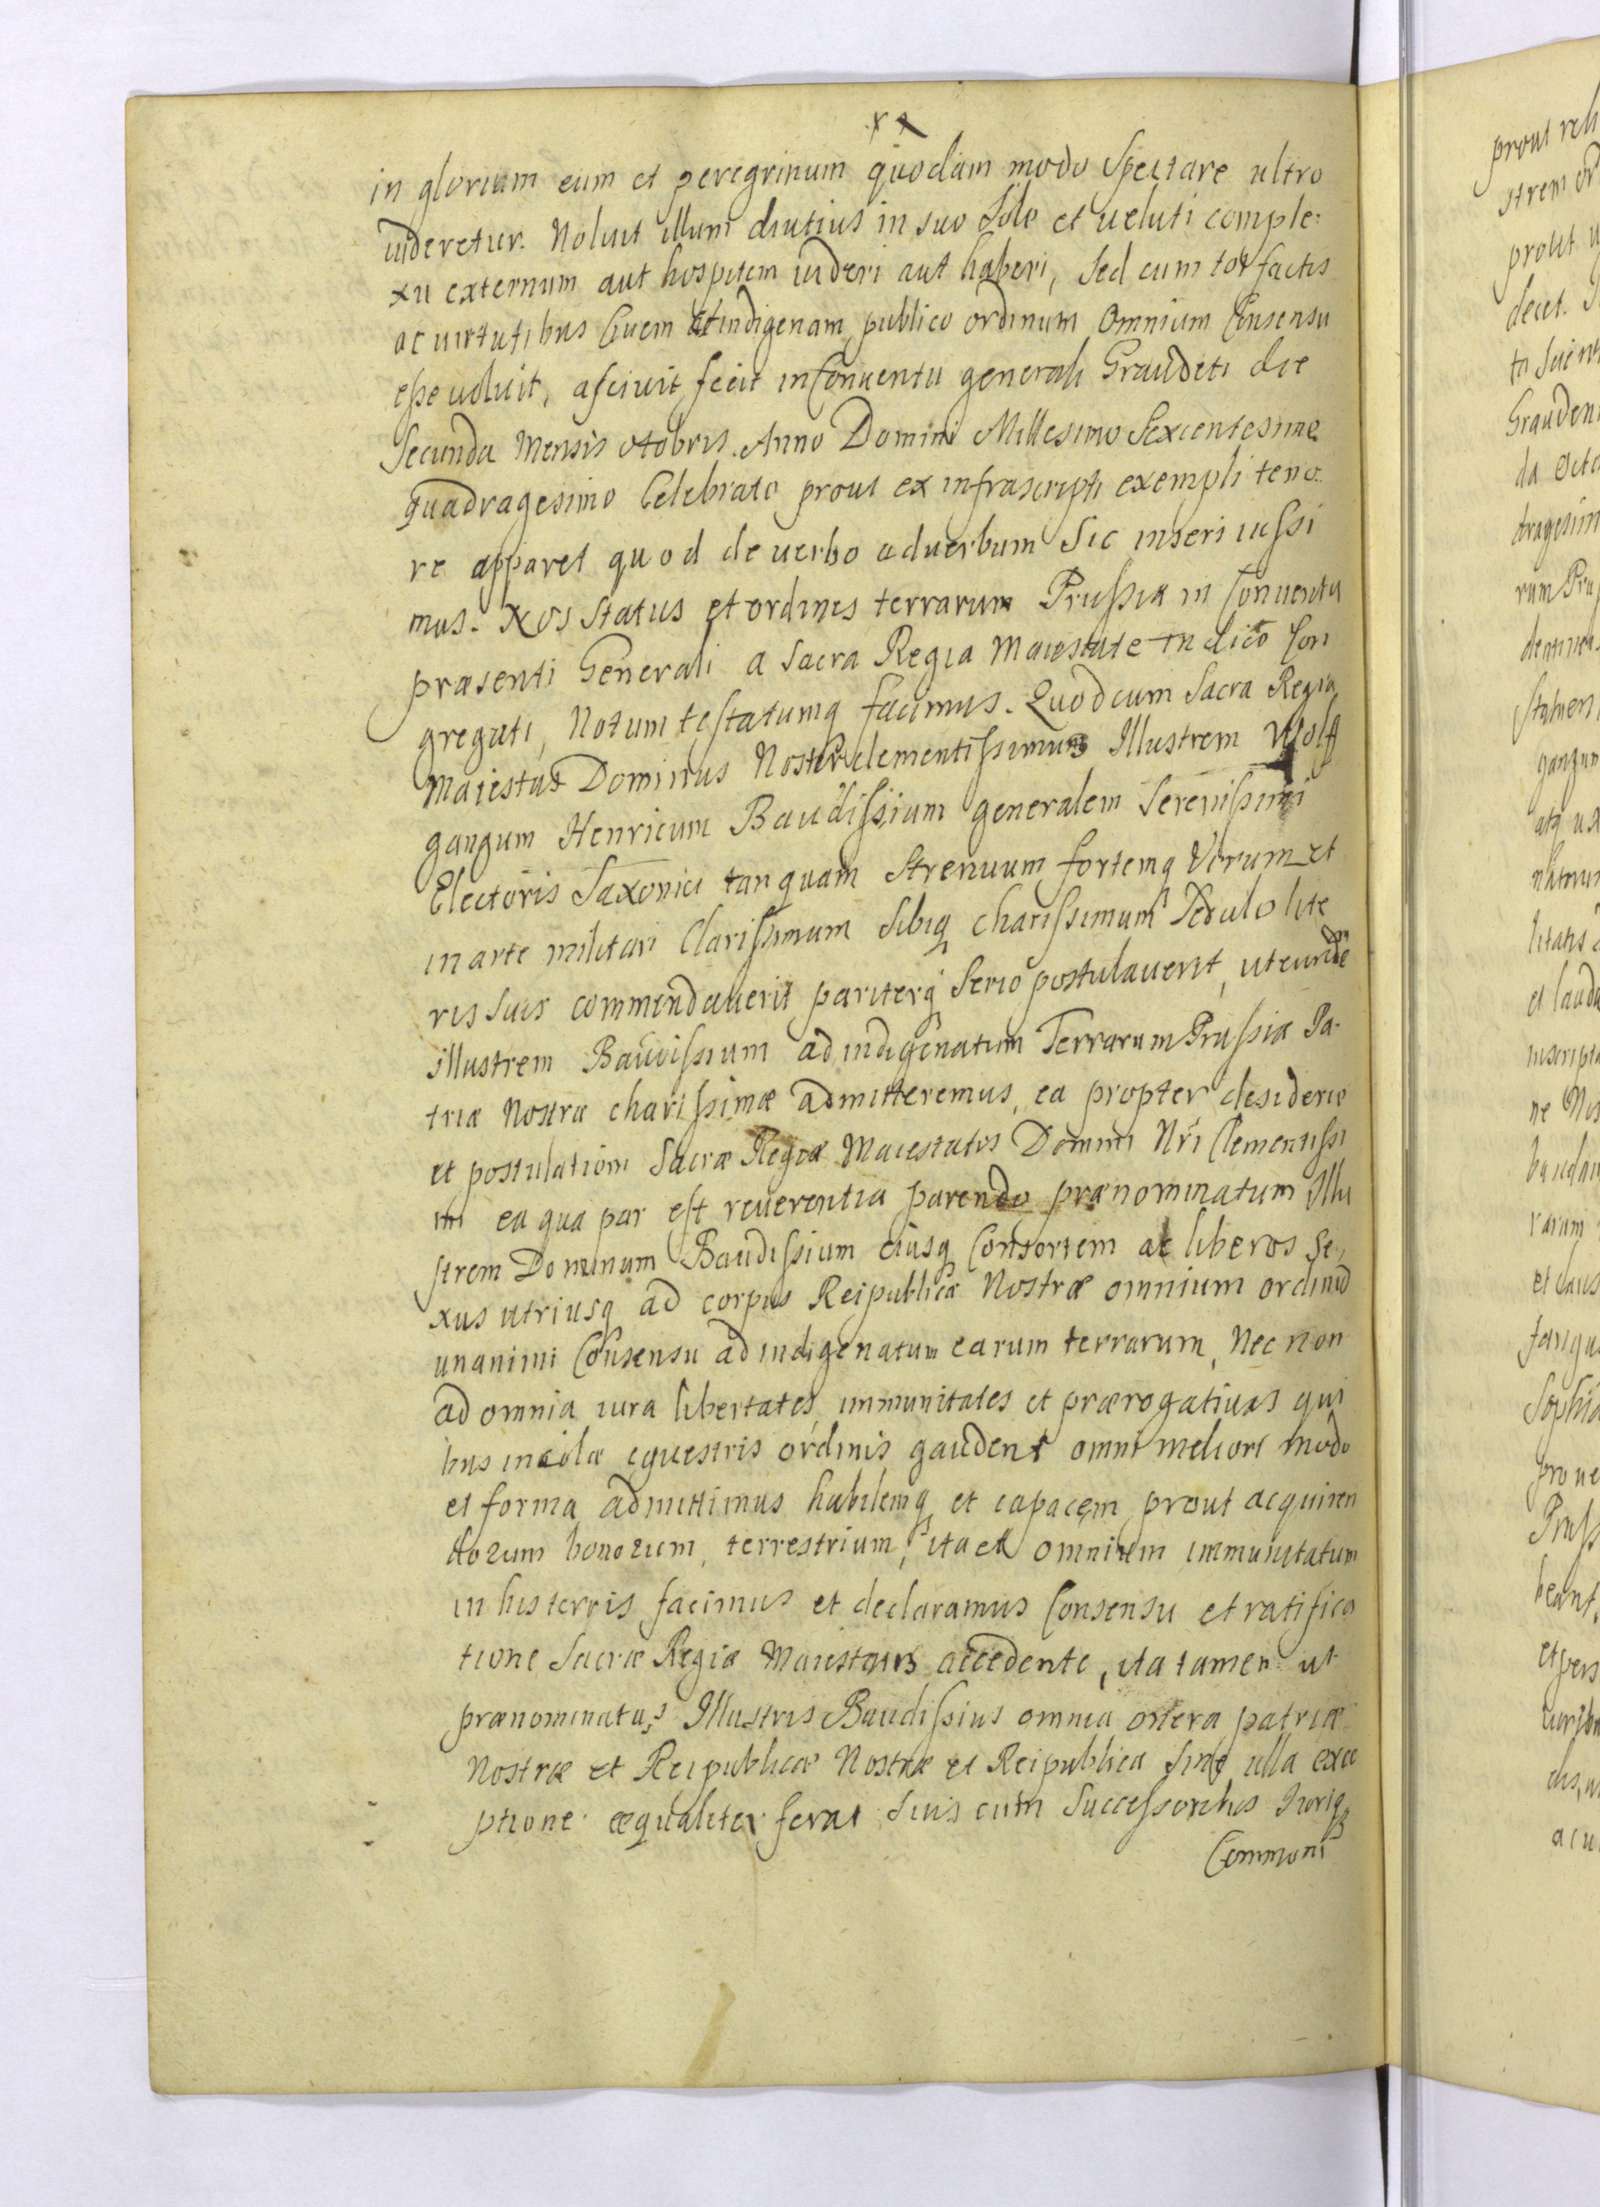 in gloriam eum et peregrinum quodam modo spectare ultro
uideretur. Noluit illum diutius in suo Solo et ueluti comple:
xu externum aut hospitem uideri aut haberi, sed eum tot factis
ac uirtutibus Ciuem et indigenam publico ordinum Omnium Consensu
esse uoluit, asciuit fecit in Conuentu generali Graudeti die
Secunda Mensis otobris Anno Domini Millesimo Sexcentesimo
quadragesimo Celebrato prout ex infrascripti exempli teno
re apparet quod de uerbo aduerbum Sic inseri iussi
mus. Nos Status et ordines terrarum Prussiæ in Conuentu
præsenti Generali a Sacra Regia Maiestate indicto Con
gregati, Notum testatumq facimus. Quod cum Sacra Regia
Maiestas Dominus Noster clementissimus Illustrem Wolf
gangum Henricum Baudissium generalem Serenissimi
Electoris Saxonici tanquam Strenuum fortemq Virum et
in arte militari Clarissimum Sibiq charissimum Sedulo lite
ris suis commendauerit pariterq Serio postulauerit, ut eunde
illustrem Baudissium ad indigenatum Terrarum Prussiæ Pa-
triæ Nostræ charissimæ admitteremus, ea propter desiderio
et postulationi Sacræ Regiæ Maiestatis Domini Nri Clementissi
mi ea qua par est reuerentia parendo prænominatum Illu
strem Dominum Baudissium eiusq Consortem ac liberos Se,
xus utriusq ad corpus Reipublicæ Nostræ omnium ordinu
unanimi Consensu ad indigenatum earum terrarum, Nec non
ad omnia iura libertates, immunitates et prærogatiuas qui
bus incolæ equestris ordinis gaudent omni meliori modo
et forma admittimus habilemq et capacem prout acquiren
dorum bonorum terrestrium, ita et omnium immunitatum
in his terris facimus et declaramus Consensu et ratifica
tione Sacræ Regiæ Maiestatis accedente, ita tamen ut
prænominatus Illustris Baudissius omnia onera patriæ
Nostræ et Reipublicæ Nostræ et Reipublica Sine ulla exce
ptione æqualiter ferat Suis cum Successoribus Iuriq
Communi